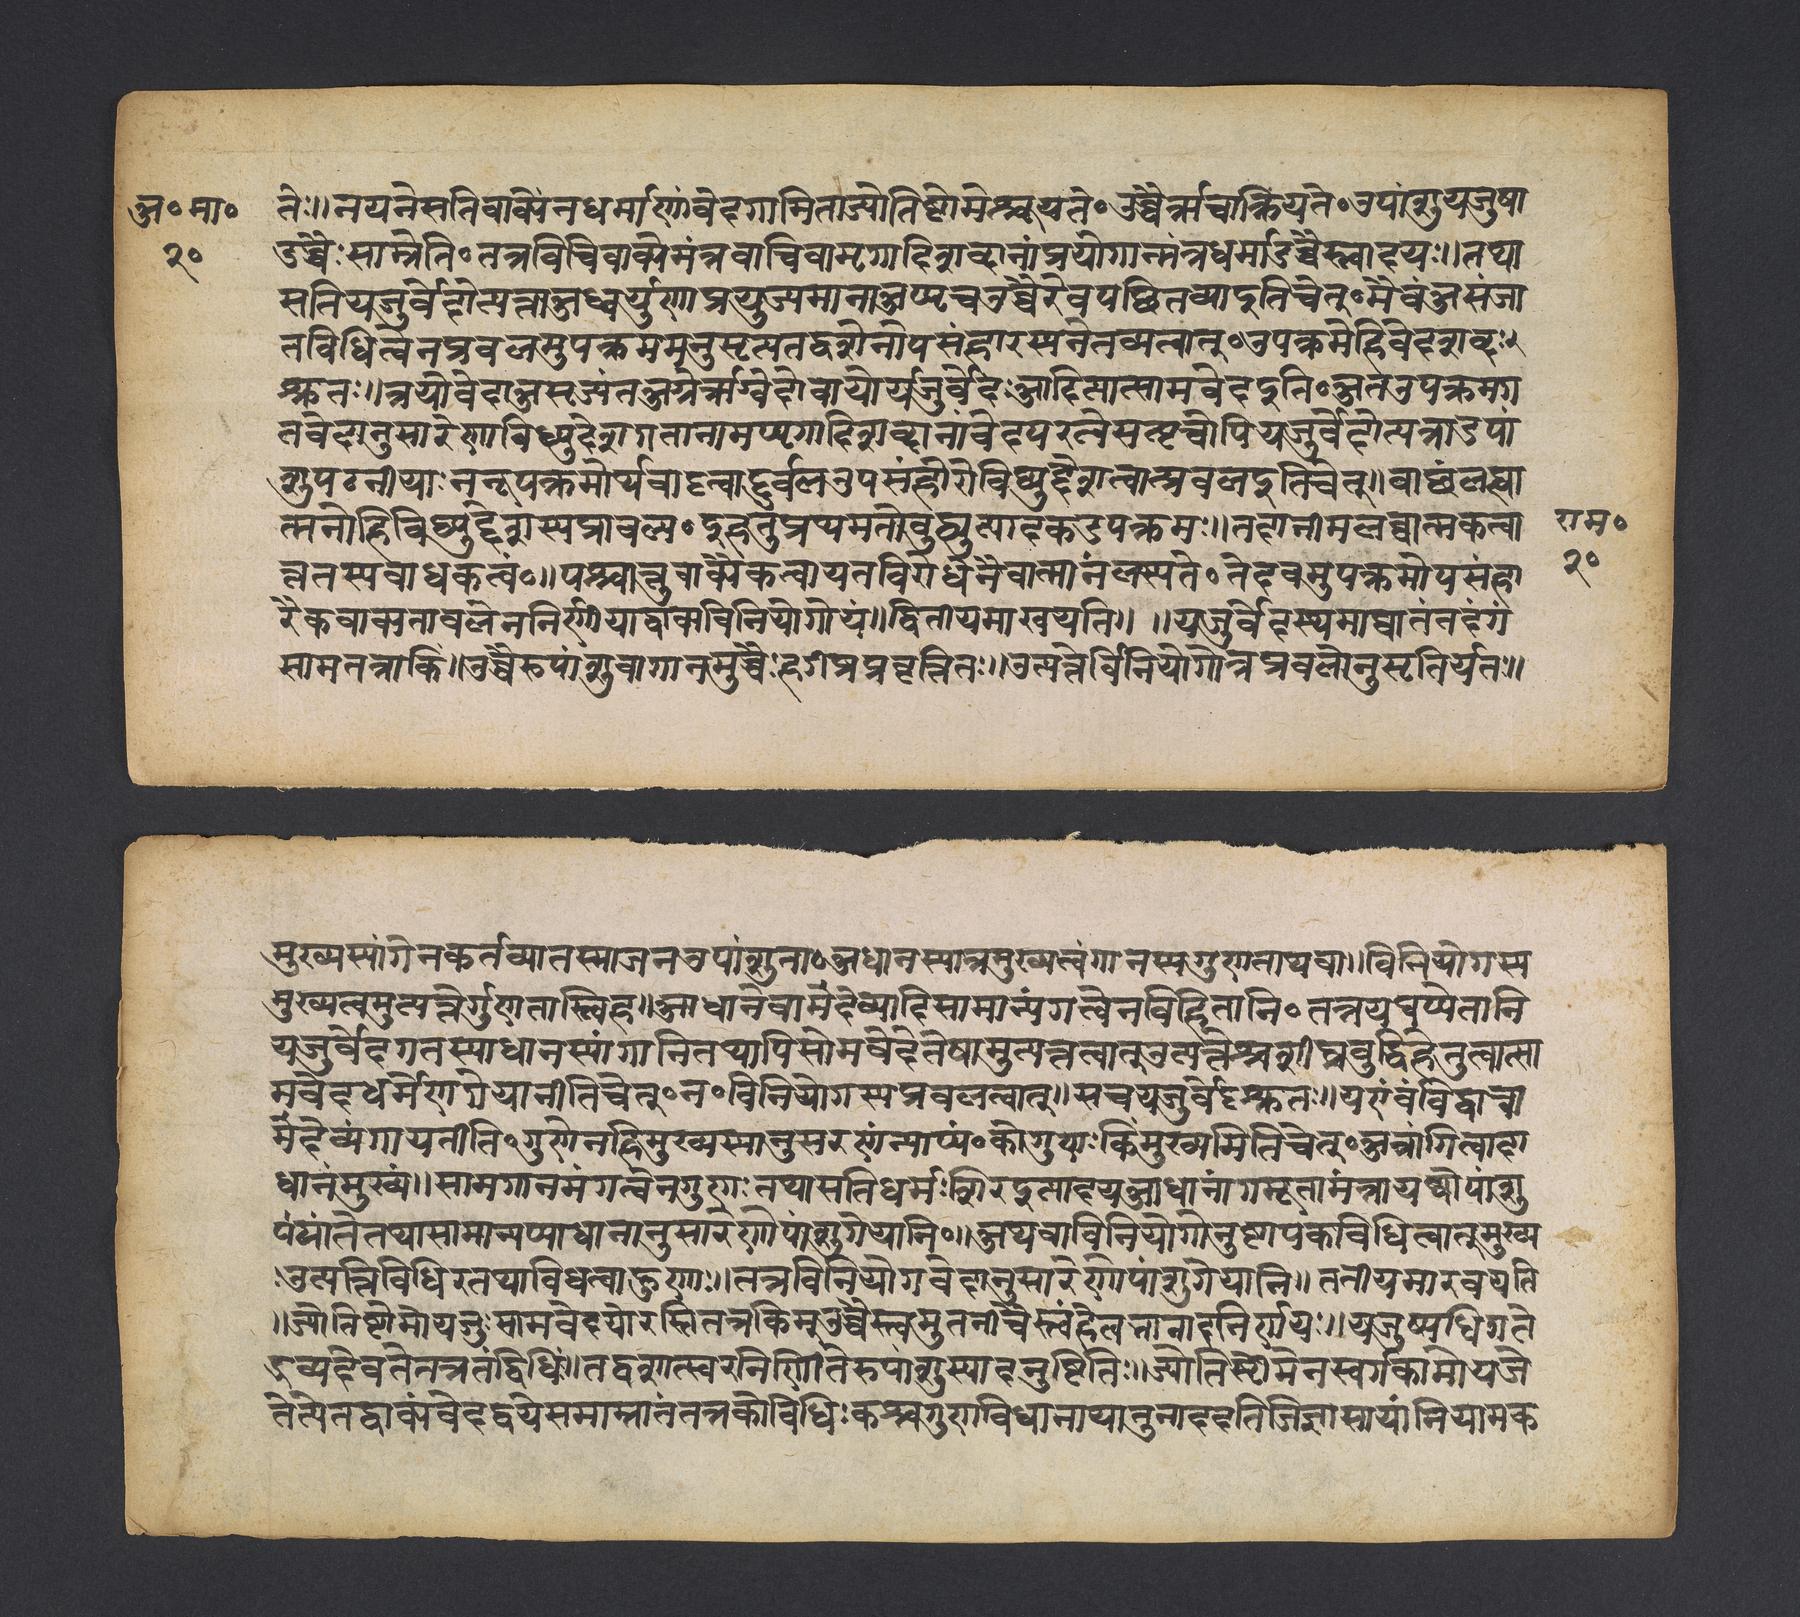 अ॰मा॰
२०
ते॥नयनेसतिवाक्येनधर्माणांवेदगामिताज्योतिष्टोमेश्रूयते॰उच्चैर्ऋचाक्रियते॰उपांशुयजुषा
उच्चैःसाम्नेति॰तत्रविधिवाक्येमंत्रवाचिवामृगादिशब्दानांप्रयोगान्मंत्रधर्माउच्चैस्त्वादयः॥तथा
सतियजुर्वेदोत्पन्नाअध्वर्युणाप्रयुज्यमानाअप्यृचउच्चैरेवपठितव्याइतिचेत्॰मैवंअसंजा
तविधित्वेनप्रबलमुपक्रममनुसृत्यतद्वशेनोपसंहारस्यनेतव्यत्वात्॰उपक्रमेहिवेदशब्दः
श्रुतः॥त्रयोवेदाअसृज्यंतअग्नेर्ऋग्वेदोवायोर्यजुर्वेदःआदित्यात्सामवेदइति॰अतउपक्रमग
तवेदानुसारेणविध्युद्देशगतानामप्यृगादिशब्दानांवेदपरत्वेसत्यृचोपियजुर्वेदोत्पन्नाउपां
शुपठनीयाःनन्वुपक्रमोर्थवादत्वाद्दुर्बलउपसंहारोविध्युद्देशत्वात्प्रबलइतिचेत्॥बाढंलब्धा
त्मनोहिविध्युद्देशस्यप्राबल्यं॰इहतुप्रथमतोबुध्युत्पादकउपक्रमः॥तदानीमलब्धात्मकत्वा
न्नतस्यबाधकत्वं॰॥पश्चात्तुवाक्यैकत्वायतविरोधेनैवात्मानंलप्स्यते॰तदेवमुपक्रमोपसंहा
रैकवाक्यताबलेननिर्णीयाद्वाक्यविनियोगोयं॥द्वितीयमारचयति॥॥यजुर्वेदस्थमाधानंतदंगं
सामतत्रकिं॥उच्चैरुपांशुवागानमुच्चैःशीघ्रप्रवृत्तितः॥उत्पत्तेर्विनियोगोत्रप्रबलोनुसृतिर्यतः॥
राम॰
२०
मुख्यस्यांगेनकर्तव्यातस्माज्जनउपांशुना॰अधानस्यात्रमुख्यत्वंगानस्यगुणताथवा॥विनियोगस्य
मुख्यत्वमुत्पत्तेर्गुणतास्त्विह॥आधानेवामदेव्यादिसामान्यंगत्वेनविहितानि॰तत्रयद्यप्येतानि
यजुर्वेदगतस्याधानस्यांगानितथापिसामवेदेतेषामुत्पन्नत्वात्उत्पत्तेश्चशीघ्रबुद्धिहेतुत्वात्सा
मवेदधर्मेणगेयानीतिचेत्॰न॰विनियोगस्यप्रबलत्वात्॥सचयजुर्वेदेश्रुतः॥यएवंविद्वान्वा
मदेव्यंगायतीति॰गुणेनहिमुख्यस्यानुसरणंन्याय्यं॰कोगुणःकिंमुख्यमितिचेत्॰अत्रांगित्वादा
धानंमुख्यं॥सामगानमंगत्वेनगुणःतथासतिधर्मःशिरइत्यादयआधानांगभूतामंत्रायथोपांशु
पठ्यंतेतथासामान्यप्याधानानुसारेणोपांशुगेयानि॰॥अथवाविनियोगोनुष्ठापकविधित्वात्मुख्य
उत्पत्तिविधिरतथाविधत्वाद्गुणः॥तत्रविनियोगवेदानुसारेणोपांशुगेयानि॥तृतीयमारचयति
॥ज्योतिष्टोमोयजुःसामवेदयोरस्तितत्रकिम्उच्चैस्त्वमुतनीचैस्त्वंहेत्वभावादनिर्णयः॥यजुष्यधिगते
द्रव्यदेवतेतत्रतद्विधिं॥तद्वशात्स्वरनिर्णीतेरुपांशुस्यादनुष्ठितिः॥ज्योतिष्टोमेनस्वर्गकामोयजे
तेत्येतद्वाक्यंवेदद्वयेसमाम्नातंतत्रकोविधिःकश्चगुणविधानायानुवादइतिजिज्ञासायांनियामक